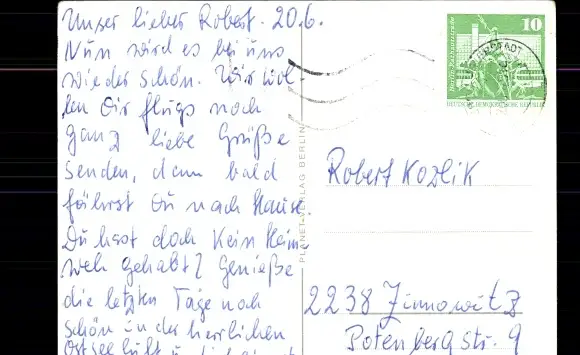 Unser lieber Robert. 20.6.
Nun wird es bei uns
wieder schön. Wir wol-
len Dir flugs noch
ganz liebe Grüße
senden, denn bald
fährst Du nach Hause.
Du hast doch kein Heim-
weh gehabt? Genieße
die letzten Tage noch
schön in der herrlichen
Ostseeluft u.
PLANET-VERLAG BERLIN
10
DEUTSCHE DEMOKRATISCHE REPUBLIK
Robert Kozlik
2238 Zinnowitz
Potenbergstr. 9